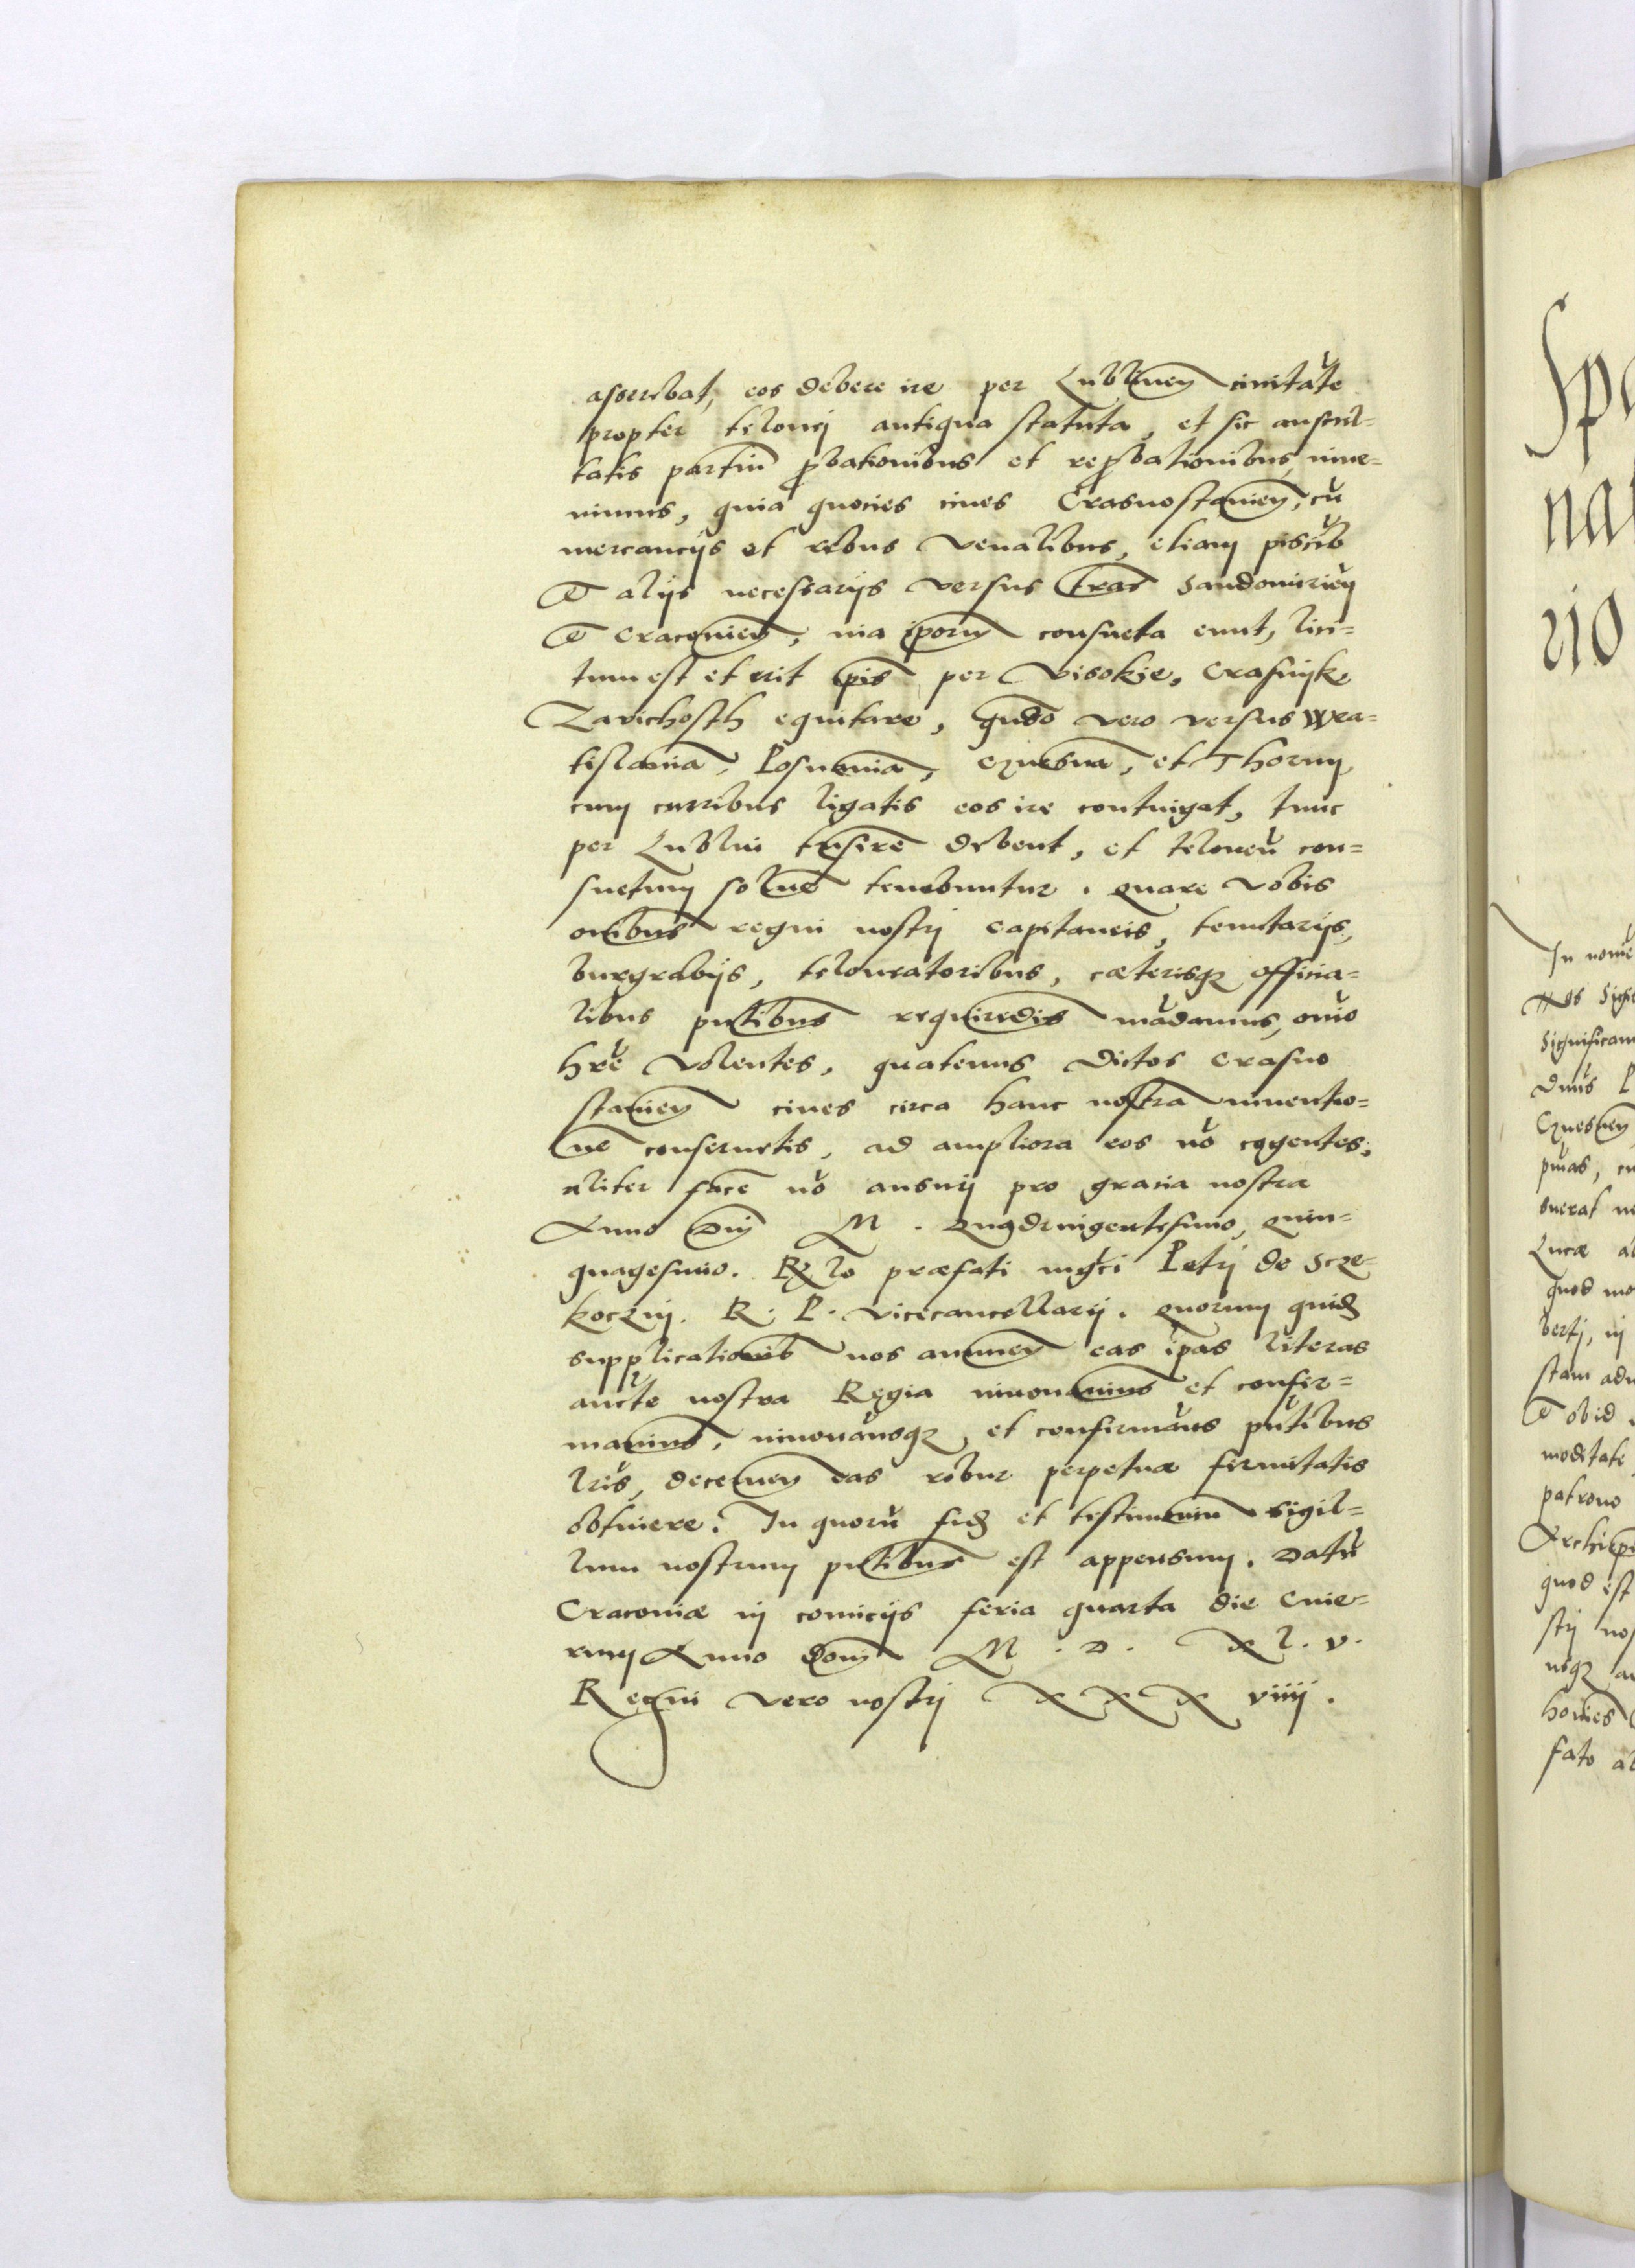 asserebat, eos debere ire per Lublineñ civitatē
propter telonej antiqua statuta, et sic auscul=
tatis partiū probationibus et reprobationibus, inve=
nimus, quia quocies cives Crasnostavieñ, cū
mercancijs et rebus venalibus, etiam piscib
et alijs necessarijs versus tras Sandomirieñ
et Cracovieñ, via iporum consueta eunt, lici=
tum est et erit ipis per Visokie, Crasnijk,
Zavichosth equitare, qndo vero versus Wra=
tislaviā, Posnaniā, Gnesnā, et Thorun,
cum curribus ligatis eos ire contingat, tunc
per Lublin trāsire debent, et teloneū con=
suetum solvē tenebuntur. quare vobis
oībus regni nostrj capitaneis, tenutarijs,
burgrabijs, teloneatoribus, cæterisq officia=
libus pntibus requirēdis mādamus, omō
hrē volentes, quatenus dictos Crasno
stavieñ cives circa hanc nostrā inventio=
nē conservetis, ad ampliora eos nō cogentes,
aliter facē nō ausuri pro gracia nostra
Anno Dnj M. Quadringentesimo, quin=
quagesimo. Rlō præfati mgci Petrj de Scze=
koczin. R. P. Vicecancellarij. Quorum quid
supplicationib nos annueñ eas ipas literas
aucte nostra Regia innovavimus et confir=
mavimus, innovāusq, et confirmāus pntibus
lris, decerneñ eas robur perpetuæ firmitatis
obtinere. In quorū fid et testimoniū sigil=
lum nostrum pntibus est appensum. Datū
Cracoviæ in comicijs feria quarta die Cine=
rum Anno Domj M. D. XL. v.
Regni vero nostrj XXX viiij.
In nomē
Nos Sigis
Significam
Dnus P
Gnesneñ
Lucæ
quod mo
bertj, in
stam adu
et obid
moditate
patrono
Archiepi
quod est
strj nos
fato